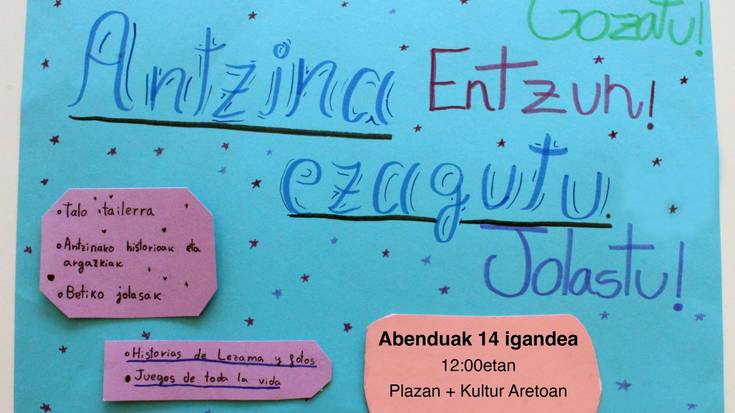 Gozatu!
Antzina Entzun!
ezagutu.
Jolastu!
Talo tailerra
Antzinako historioak eta
argazkiak
Betiko jolasak
Historias de Lezama y fotos
Juegos de toda la vida
Abenduak 14 igandea
12:00etan
Plazan + Kultur Aretoan